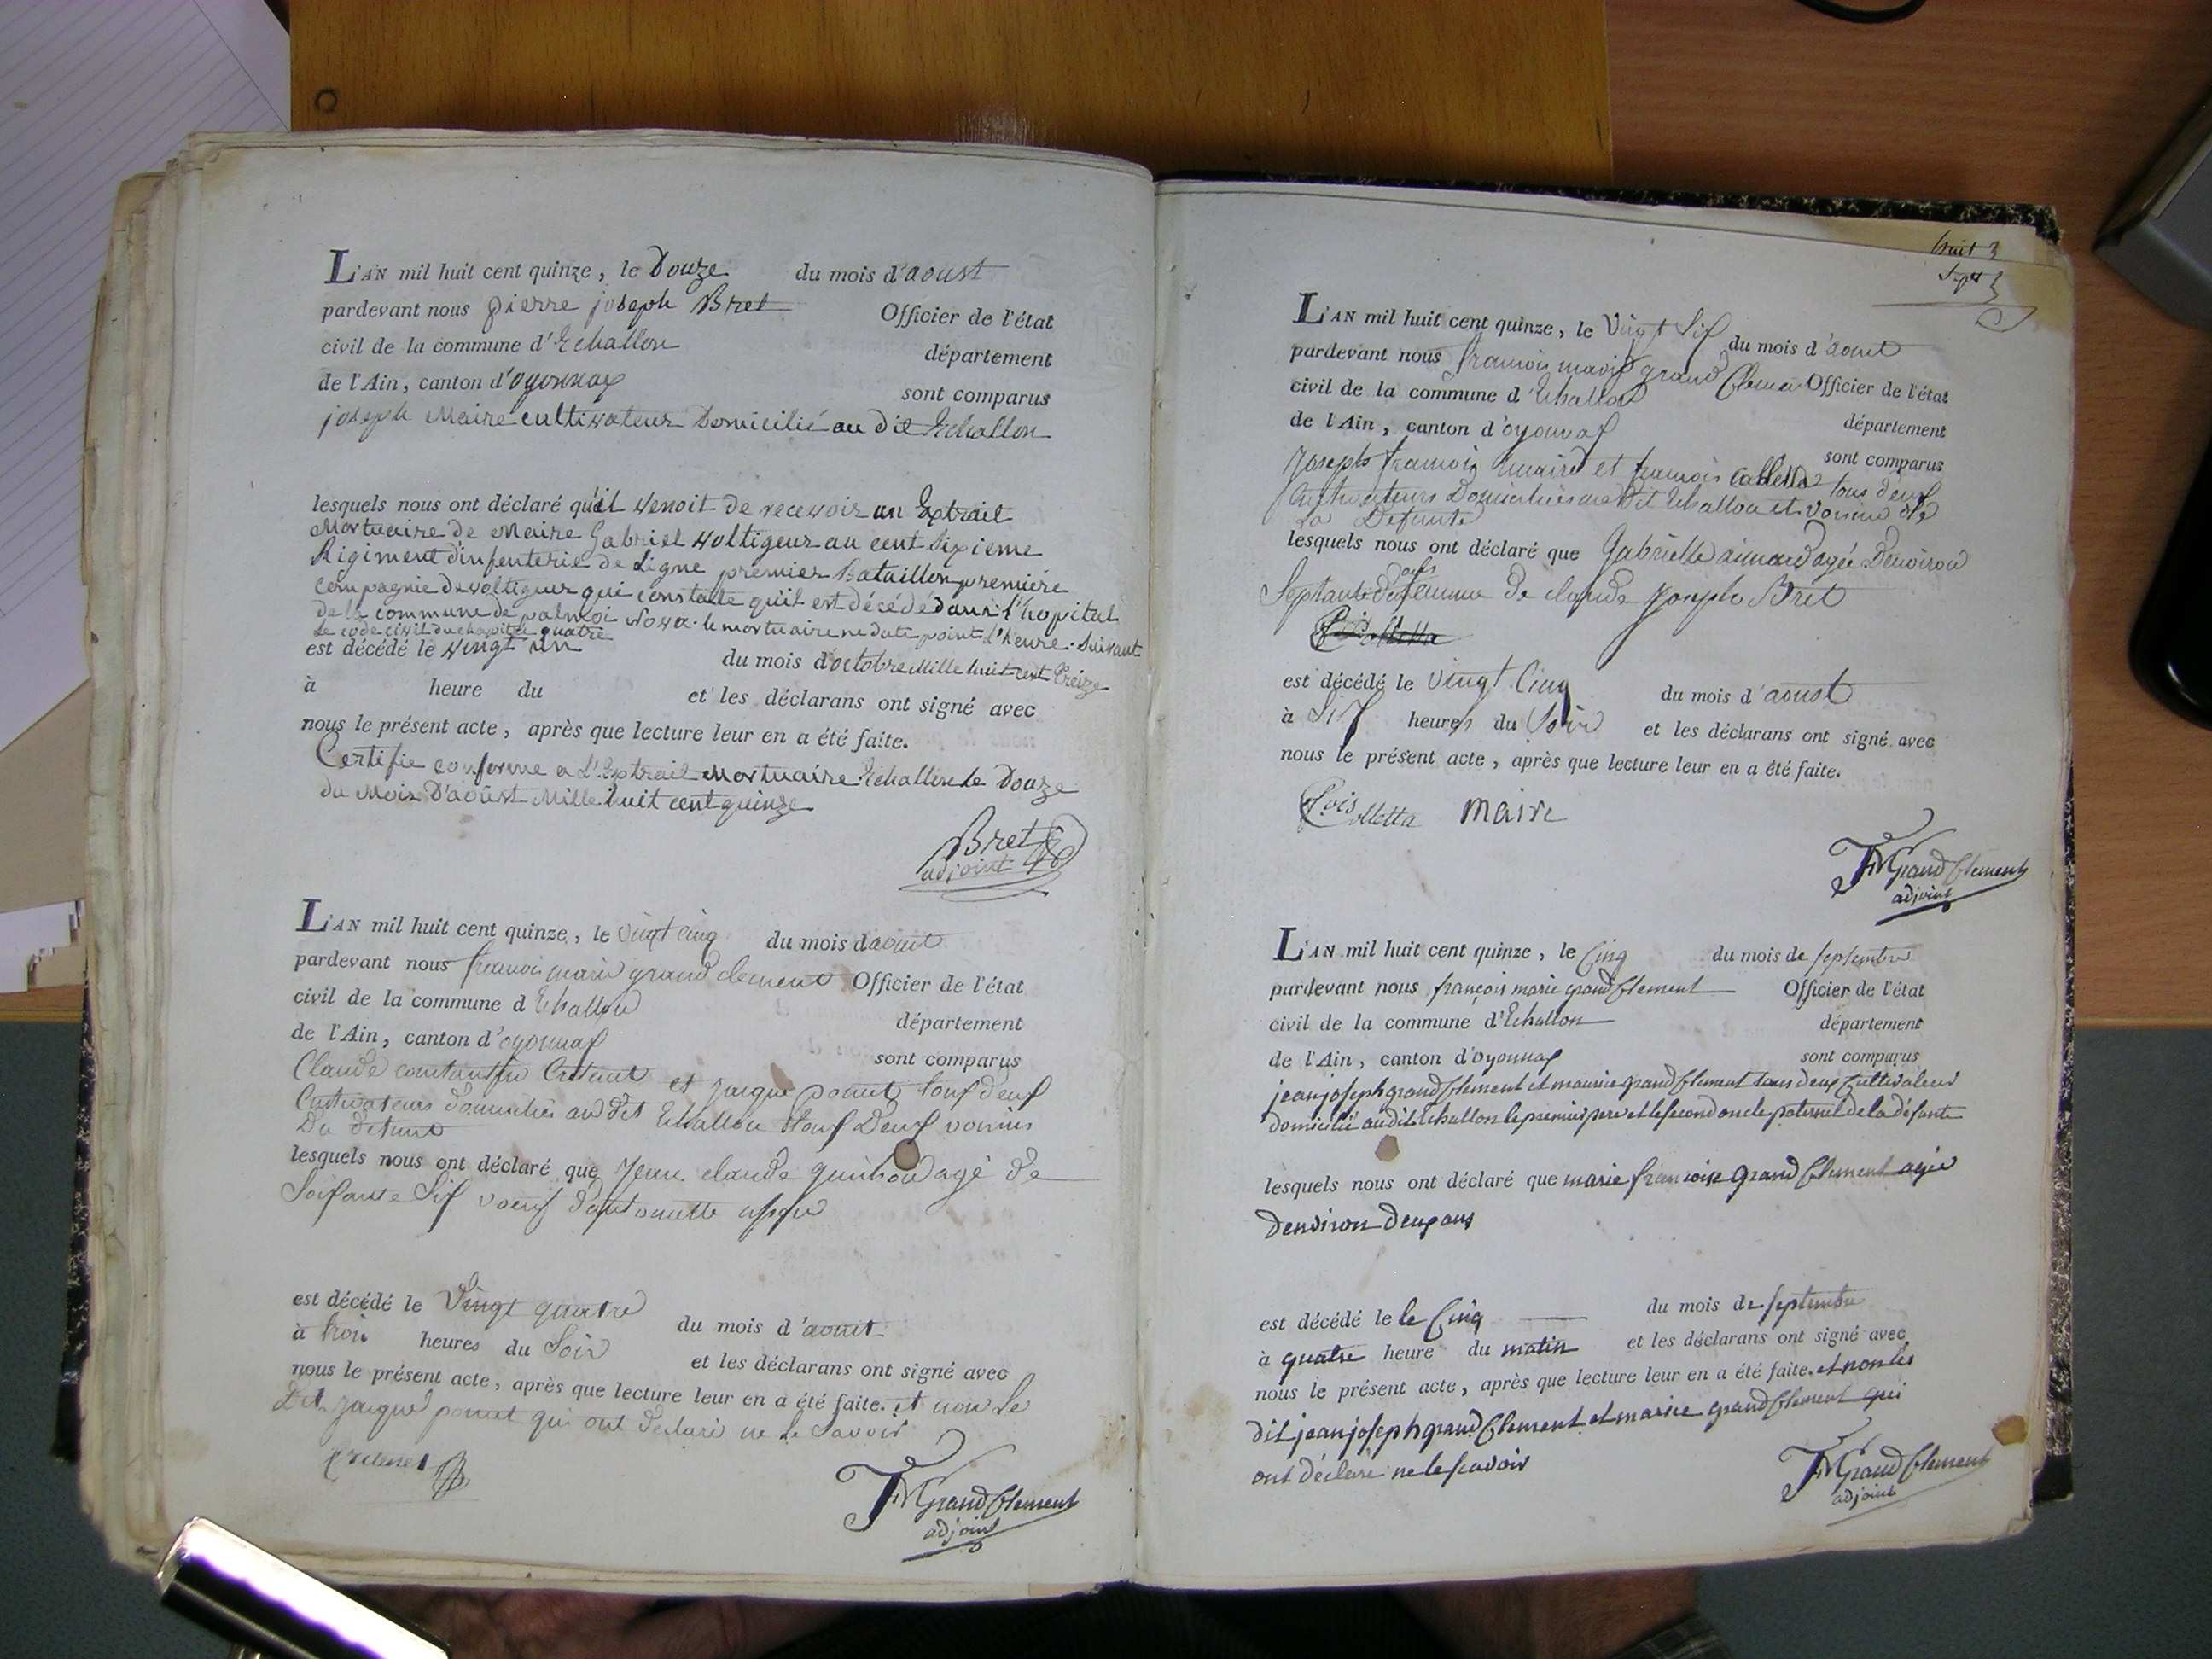 L'AN mil huit cent quinze, le Douze du mois d'aoust
pardevant nous pierre joseph Bret Officier de l'état
civil de la commune d'Echallon département
de l'Ain, canton d'oyonnax sont comparus
joseph Maire cultivateur Domicilié au dit Echallon
lesquels nous ont déclaré qu'il venoit de recevoir un Extrait
Mortuaire de Maire Gabriel voltigeur au cent sixieme
Régiment d'infenterie de Ligne premier Bataillon premiere
compagnie de voltigeur qui constate qu'il est décédé dans l'hopital
de la commune de palmoi nova. le mortuaire ne date point d'heure. suivant
le code civil du chapitre quatre
est décédé le vingt un du mois d'octobre Mille huit cent treize
à heure du et les déclarans ont signé avec
nous le présent acte, après que lecture leur en a été faite.
Certifie conforme a L'Extrait Mortuaire Echallon le Douze
du Mois D'aoust Mille huit cent quinze
Bret
adjoint
L'AN mil huit cent quinze, le vingt cinq du mois d'aout
pardevant nous francois marie grand clement Officier de l'état
civil de la commune d Echallon département
de l'Ain, canton d'oyonnax sont comparus
Claude constantin et jaque poncet touf deuf
Cultivateurs domiciliés au dit Echallon touf Deuf voisins
Du defunt
lesquels nous ont déclaré que Jean claude agé de
Soisante Sif voeuf d'antoinette
est décédé le Vingt quatre du mois d'aout
à troi heures du Soir et les déclarans ont signé avec
nous le présent acte, après que lecture leur en a été faite. et non Le
Dit jaque poncet qui ont déclaré ne le Savoir
FMGrandClement
adjoint
huit
Sept
L'AN mil huit cent quinze, le Vingt Sif du mois d'aout
pardevant nous francois marie grand Clement Officier de l'état
civil de la commune d'Echallon département
de l'Ain, canton d'oyonnaf sont comparus
Joseph francois maire et francois tous deuf
Cultivateurs Domiciliés au Dit Echallon et voisins de
La Defunte
lesquels nous ont déclaré que Gabrielle aimard agée D'environ
Septante ans femme De claude Joseph Bret
est décédé le Vingt Cinq du mois d'aoust
à Sif heures du Soir et les déclarans ont signé avec
nous le présent acte, après que lecture leur en a été faite.
maire
FMGrandClement
adjoint
L'AN mil huit cent quinze, le Cinq du mois de septembre
pardevant nous françois marie grand Clement Officier de l'état
civil de la commune d'Echallon département
de l'Ain, canton d'oyonnax sont comparus
jean joseph grand Clement et maurice grand Clement tous deux Cultivateur
domicilié audit Echallon le premier pere et le second oncle paternel de la défunte
lesquels nous ont déclaré que marie francoise grand Clement agée
denviron deux ans
est décédé le le Cinq du mois de septembre
à quatre heure du matin et les déclarans ont signé avec
nous le présent acte, après que lecture leur en a été faite. et non les
dit jean joseph grand Clement et maurice grand Clement qui
ont déclaré ne le scavoir
FMGrandClement
adjoint